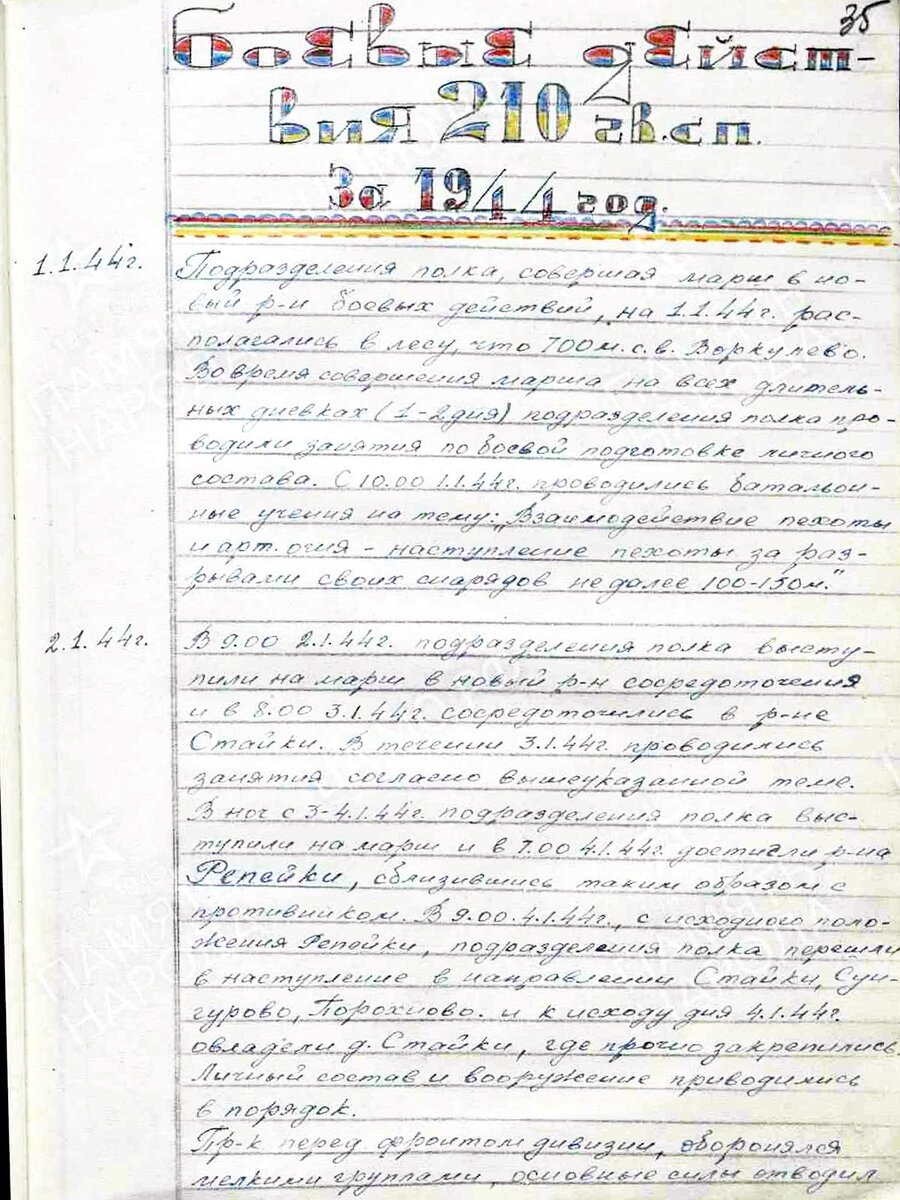 35
Боевые дейст-
вия 210 гв.сп.
За 1944 год.
1.1.44г.
Подразделения полка, совершая марш в но-
вый р-н боевых действий, на 1.1.44г. рас-
полагались в лесу, что 700м. с.в. Воркулево.
Во время совершения марша на всех длитель-
ных дневках (1-2дня) подразделения полка про-
водили занятия по боевой подготовке личного
состава. С 10.00 1.1.44г. проводились батальон-
ные учения на тему: „Взаимодействие пехоты
и арт. огня - наступление пехоты за раз-
рывами своих снарядов не далее 100-150м."
2.1.44г.
В 9.00 2.1.44г. подразделения полка высту-
пили на марш в новый р-н сосредоточения
и в 8.00 3.1.44г. сосредоточились в р-не
Стайки. В течении 3.1.44г. проводились
занятия согласно вышеуказанной теме.
В ноч с 3-4.1.44г. подразделения полка выс-
тупили на марш и в 7.00 4.1.44г. достигли р-на
Репейки, сблизившись таким образом с
противником. В 9.00. 4.1.44г., с исходного поло-
жения Репейки, подразделения полка перешли
в наступление в направлении Стайки, Сун-
гурово, Порохново. и к исходу дня 4.1.44г.
овладели д. Стайки, где прочно закрепились.
Личный состав и вооружение приводились
в порядок.
Пр-к перед фронтом дивизии, оборонялся
мелкими группами, основные силы отводил
ПАМЯТЬ
НАРОДА
ПАМЯТЬ
НАРОДА